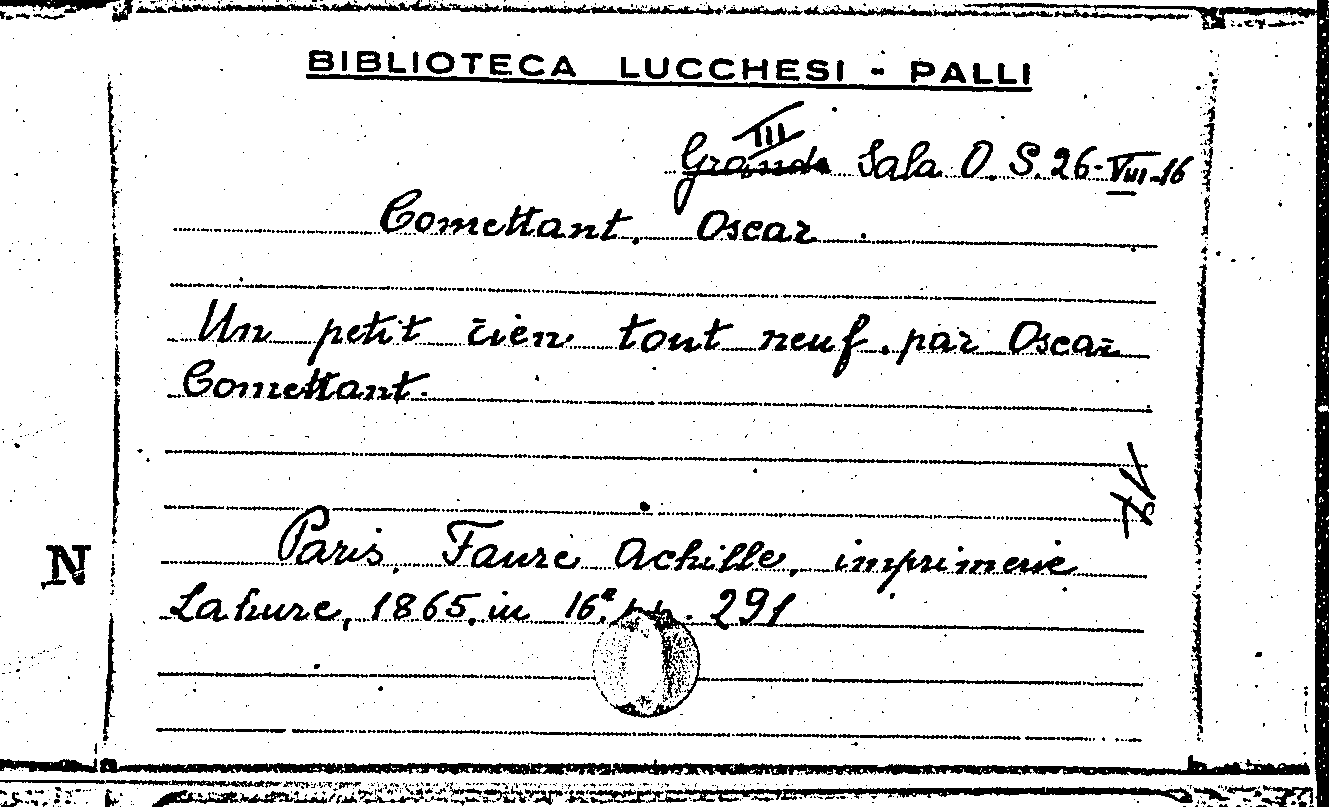 BIBLIOTECA LUCCHESI - PALLI
III
Grande Sala O. S. 26-VIII-16
Comettant. Oscar.
Un petit rien tout neuf. par Oscar
Comettant.
Paris. Faure Achille, imprimerie
Lahure, 1865, in 16º. pp. 291
N